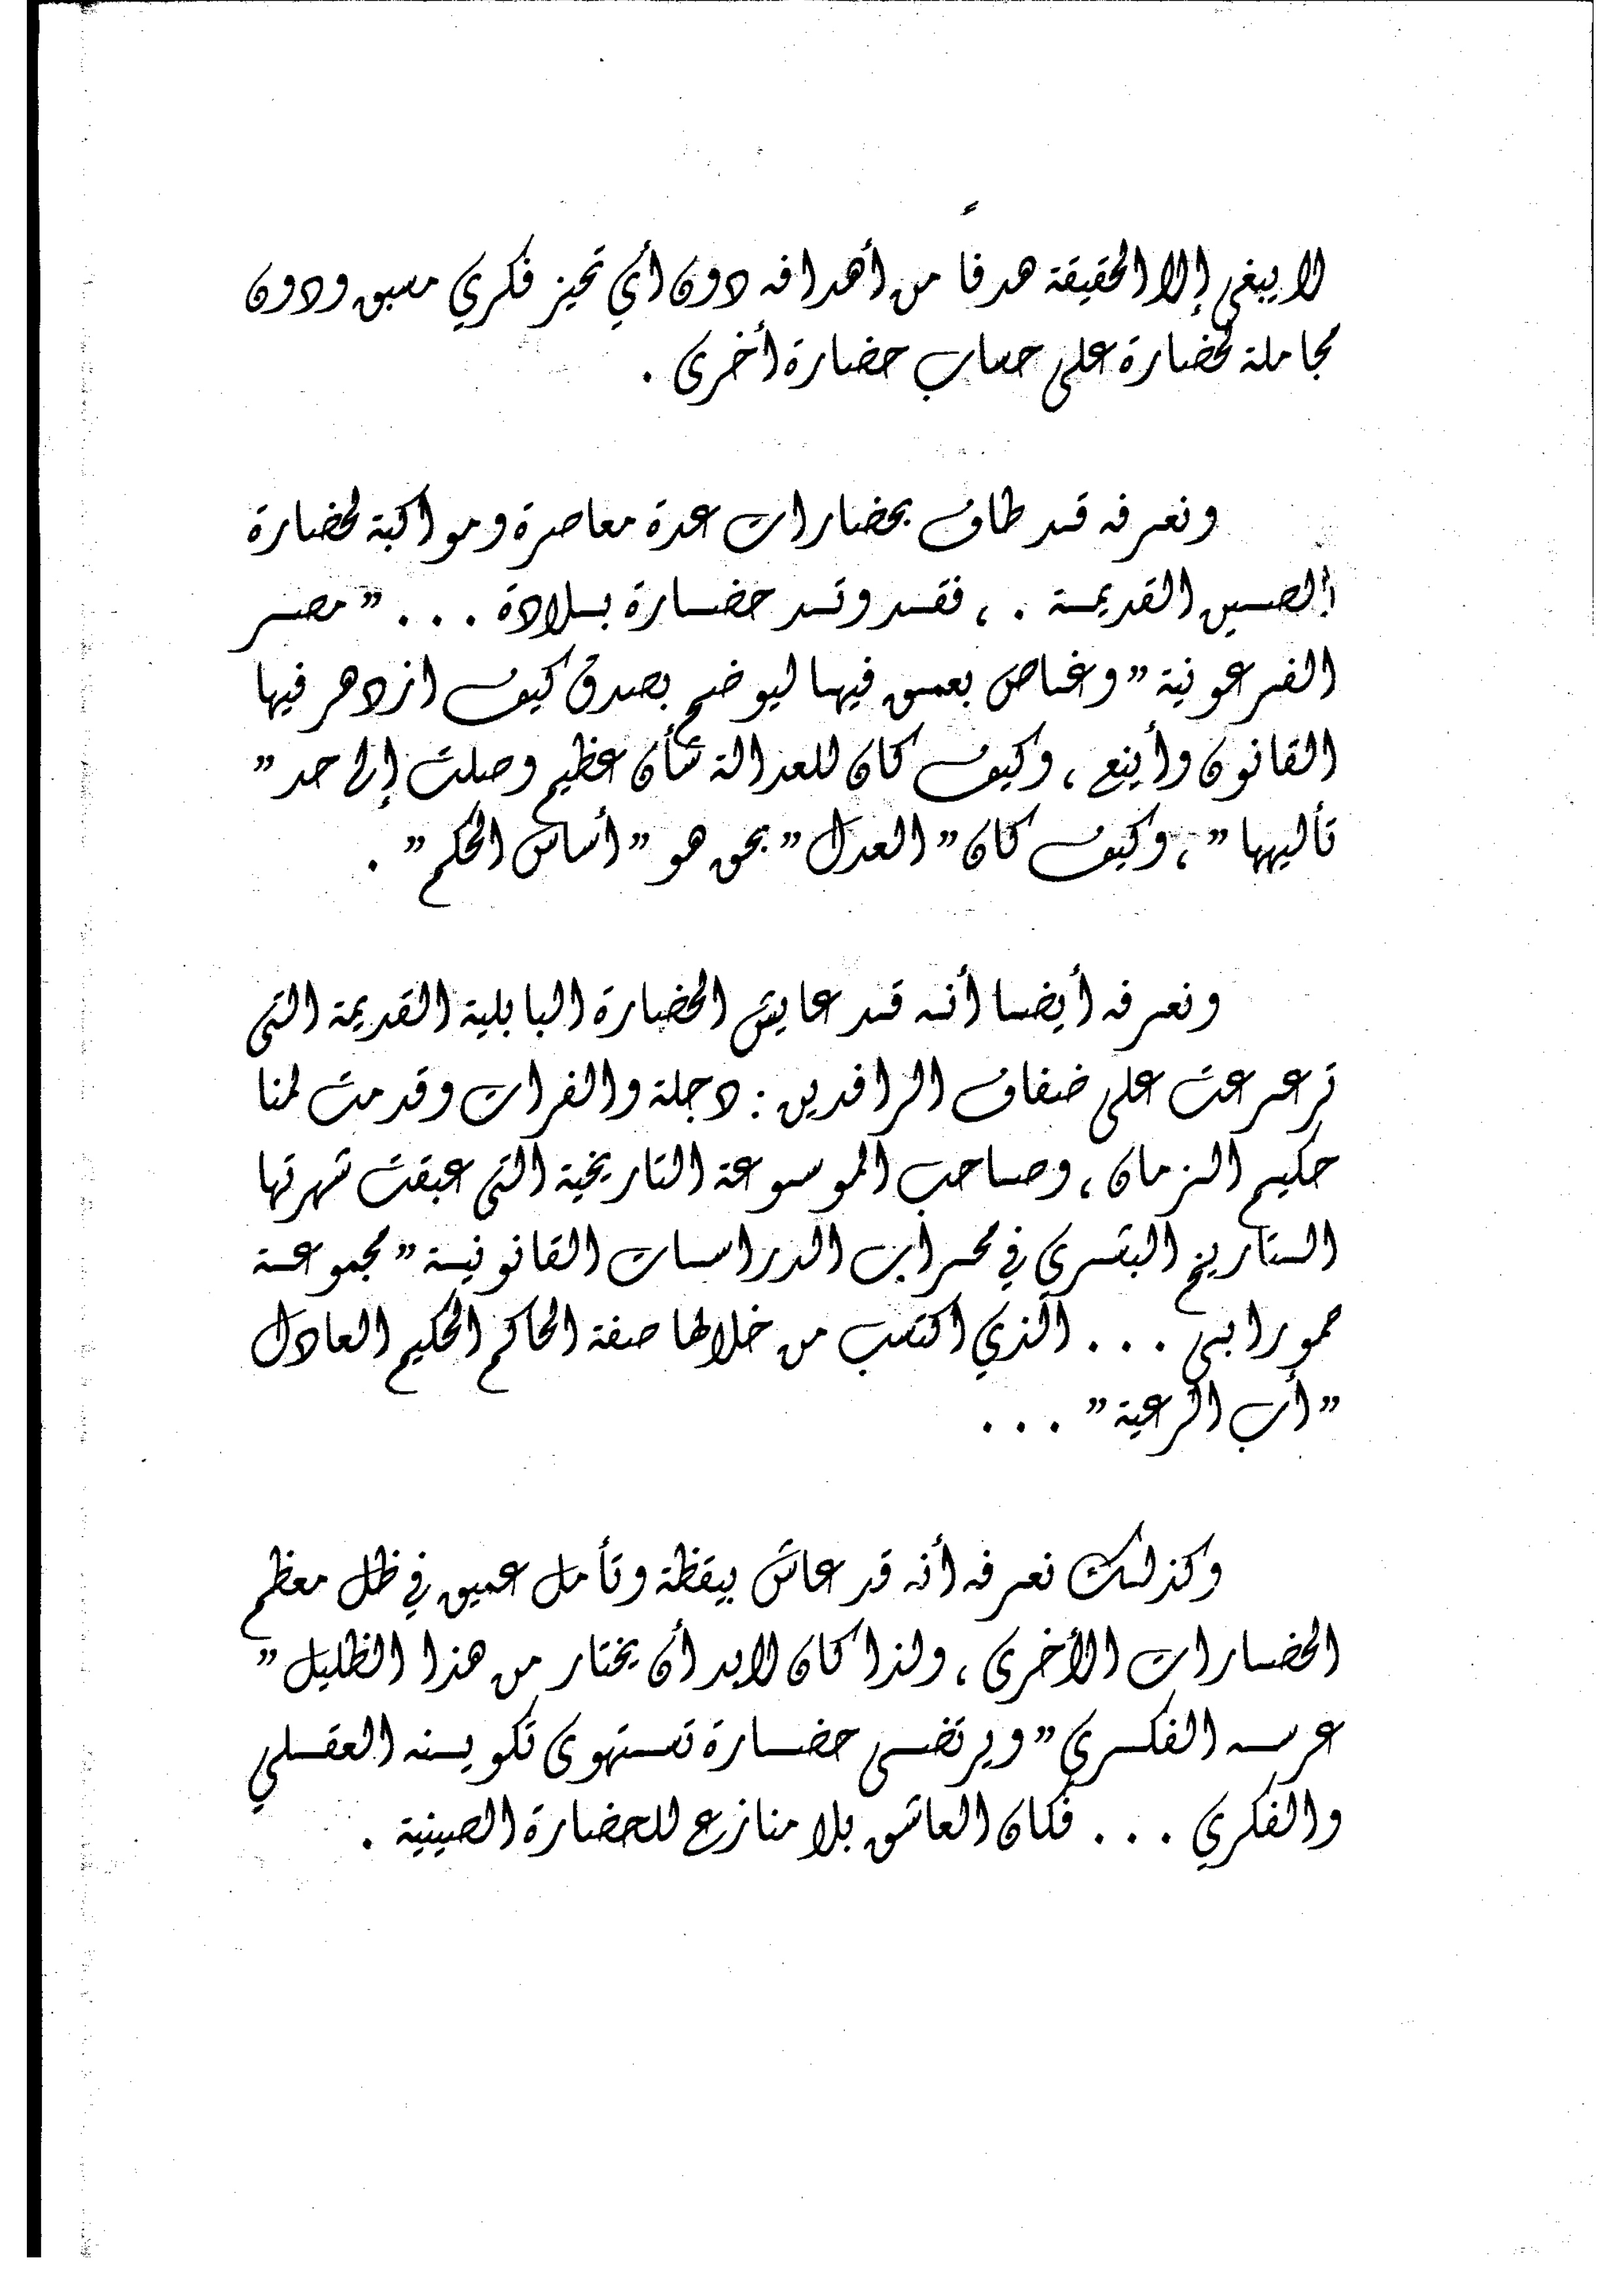 لا يبغى إلا الحقيقة هدفاً من أهدافه دون أي تحيز فكري مسبق ودون
مجاملة لحضارة على حساب حضارة أخرى .
ونعرفه قد طاف بحضارات عدة معاصرة ومواكبة لحضارة
الصين القديمة . ، فقد وتد حضارة بلادة . . . " مصر
الفرعونية " وغاص بعمق فيها ليوضح بصدق كيف ازدهر فيها
القانون وأينع ، وكيف كان للعدالة شأن عظيم وصلت إلى حد "
تأليهها " ، وكيف كان " العدل " بحق هو " أساس الحكم " .
ونعرفه أيضا أنه قد عايش الحضارة البابلية القديمة التى
ترعرعت على ضفاف الرافدين : دجلة والفرات وقدمت لمنا
حكيم الزمان ، وصاحب الموسوعة التاريخية التى عبقت شهرتها
التاريخ البشرى في محراب الدراسات القانونية " مجموعة
حمورابى . . . الذي اكتسب من خلالها صفة الحاكم الحكيم العادل
" أب الرعية " . . .
وكذلك نعرفه أنه قد عاش بيقظة وتأمل عميق في ظل معظم
الحضارات الأخرى ، ولذا كان لابد أن يختار من هذا الظليل "
عرسه الفكري " ويرتضى حضارة تستهوى تكوينه العقلي
والفكري . . . فكان العاشق بلا منازع للحضارة الصينية .